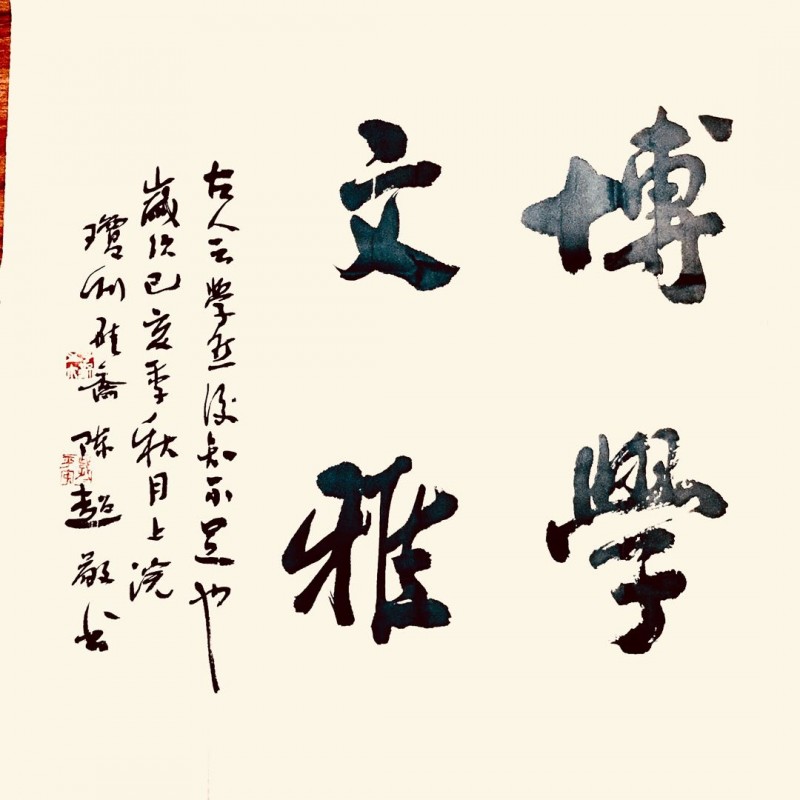 博學
文雅
古人云學然後知不足也
歲次己亥季秋月上浣
瓊州 喬陳超敬书